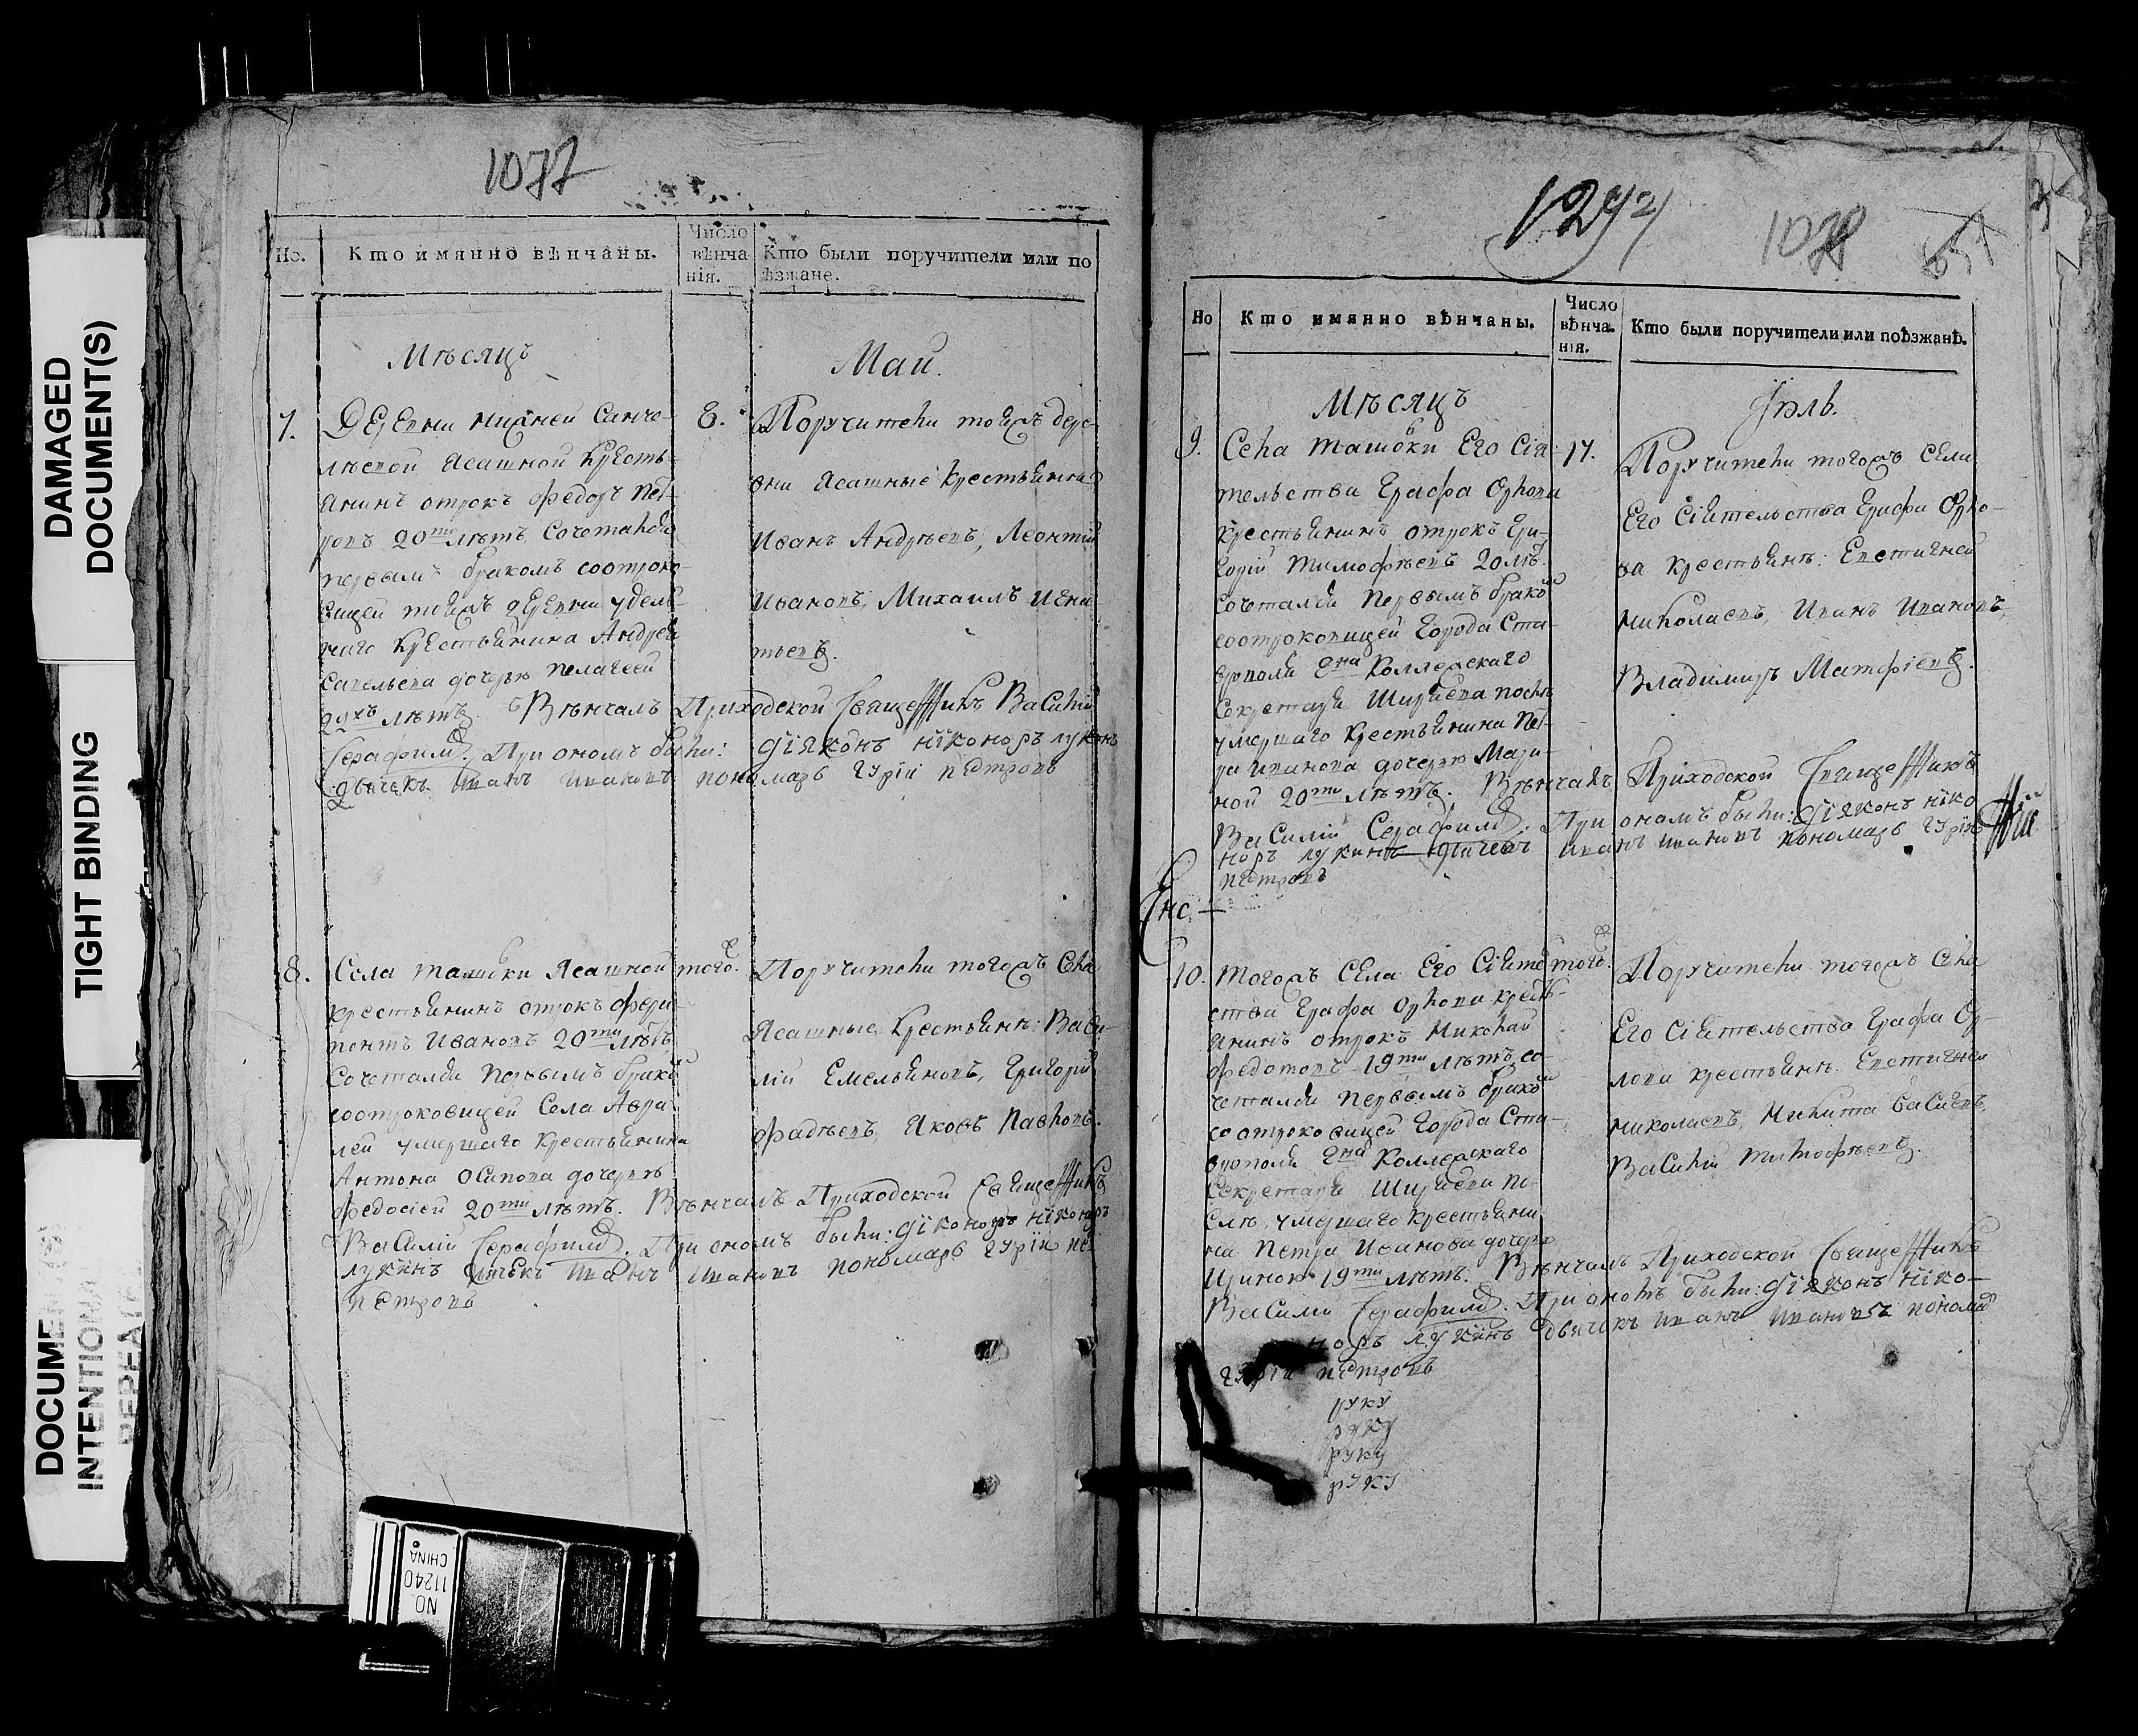 DAMAGED
DOCUMENT(S)
TIGHT BINDING
DOCUMEN
INTENTION
REPEATE
1077
Но.
Кто имянно вѣнчаны.
Число
вѣнча
нія.
Кто были поручители или по
ѣзжане.
Мѣсяцъ
Маи.
7.
Деревни нижней Санче-
лѣевой Ясашной Кресть-
янинъ отрокъ Федоръ Пет-
ровъ 20ти лѣтъ Сочетался
первымъ бракомъ соотроко-
вицей тояжъ деревни удель-
наго Крестьянина Андрея
Савельева дочерью Пелагеей
лѣтъ. Вѣнчалъ Приходской Священникъ Василій
Серафимъ. При ономъ были: діяконъ Никоноръ Лукинъ
дьячекъ Иванъ Ивановъ пономарь Гурій Петровъ
8.
Поручители тояжъ дере-
вни Ясашные Крестьянина
Иванъ Андрѣевъ, Леонтій
Ивановъ, Михаилъ Игна-
тьевъ.
8.
Села Ташовки Ясашной
крестьянинъ отрокъ Фера-
понтъ Ивановъ 20ти лѣтъ
Сочетался Первымъ брако
соотроковицей Села
умершаго крестьянина
Антона Осипова дочерью
Федосіей 20ти лѣтъ. Вѣнчалъ Приходской Священникъ
Василій Серафимъ. При ономъ были: діяконъ Никоноръ
Лукинъ дьячекъ Иванъ Ивановъ пономарь Гурій Пе
Петровъ
того.
Поручители тогожъ Села
Ясашные Крестьянѣ: Васи-
лій Емельяновъ, Григорій
Фадѣевъ, Яковъ Павловъ.
1294
1078
Но
Кто имянно вѣнчаны.
Число
вѣнча-
нія.
Кто были поручители или поѣзжанѣ.
Мѣсяцъ
9.
Села Ташовки Его Сія-
тельства Графа Орлова
крестьянинъ отрокъ Гри-
горій Тимофѣевъ 20 лѣ.
Сочетался Первымъ брако
соотроковицей Города Ста-
врополя Г-на Коллежскаго
Секретаря Ширяева послѣ
умершаго Крестьянина Пет-
ра Иванова дочерью Мари-
ной 20ти лѣтъ. Вѣнчалъ Приходской Священникъ
Василій Серафимъ. При ономъ были: діяконъ Нико
норъ Лукинъ дьячекъ Иванъ Ивановъ пономарь Гурій
Петровъ
17.
Поручители тогожъ Села
Его Сіятельства Графа Орло-
ва Крестьянѣ: Евстигней
Николаевъ, Иванъ Ивановъ,
Владимиръ Матфіевъ.
10.
Тогожъ Села Его Сіятел
ства Графа Орлова кресть-
янинъ отрокъ Николай
Федотовъ 19ти лѣтъ со-
четался Первымъ брако
со отроковицей Города Ста-
врополя Г-на Коллежскаго
Секретаря Ширяева по-
слѣ умершаго крестьяни-
на Петра Иванова дочерью
Ириной 19ти лѣтъ. Вѣнчалъ Приходской Священникъ
Василій Серафимъ. При ономъ были: діяконъ Нико-
норъ Лукинъ дьячекъ Иванъ Ивановъ пономар
Гурій Петровъ
руку
руку
руку
руку
того.
Поручители тогожъ Села
Его Сіятельства Графа Ор-
лова крестьянѣ: Евстигней
Николаевъ, Никита Васильевъ,
Василій Тимофѣевъ.
NO.
11240
CHINA